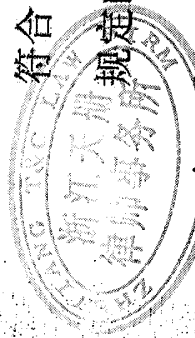 符合
规定
ZHEJIANG T&C LAW FIRM
浙江天册
律师事务所